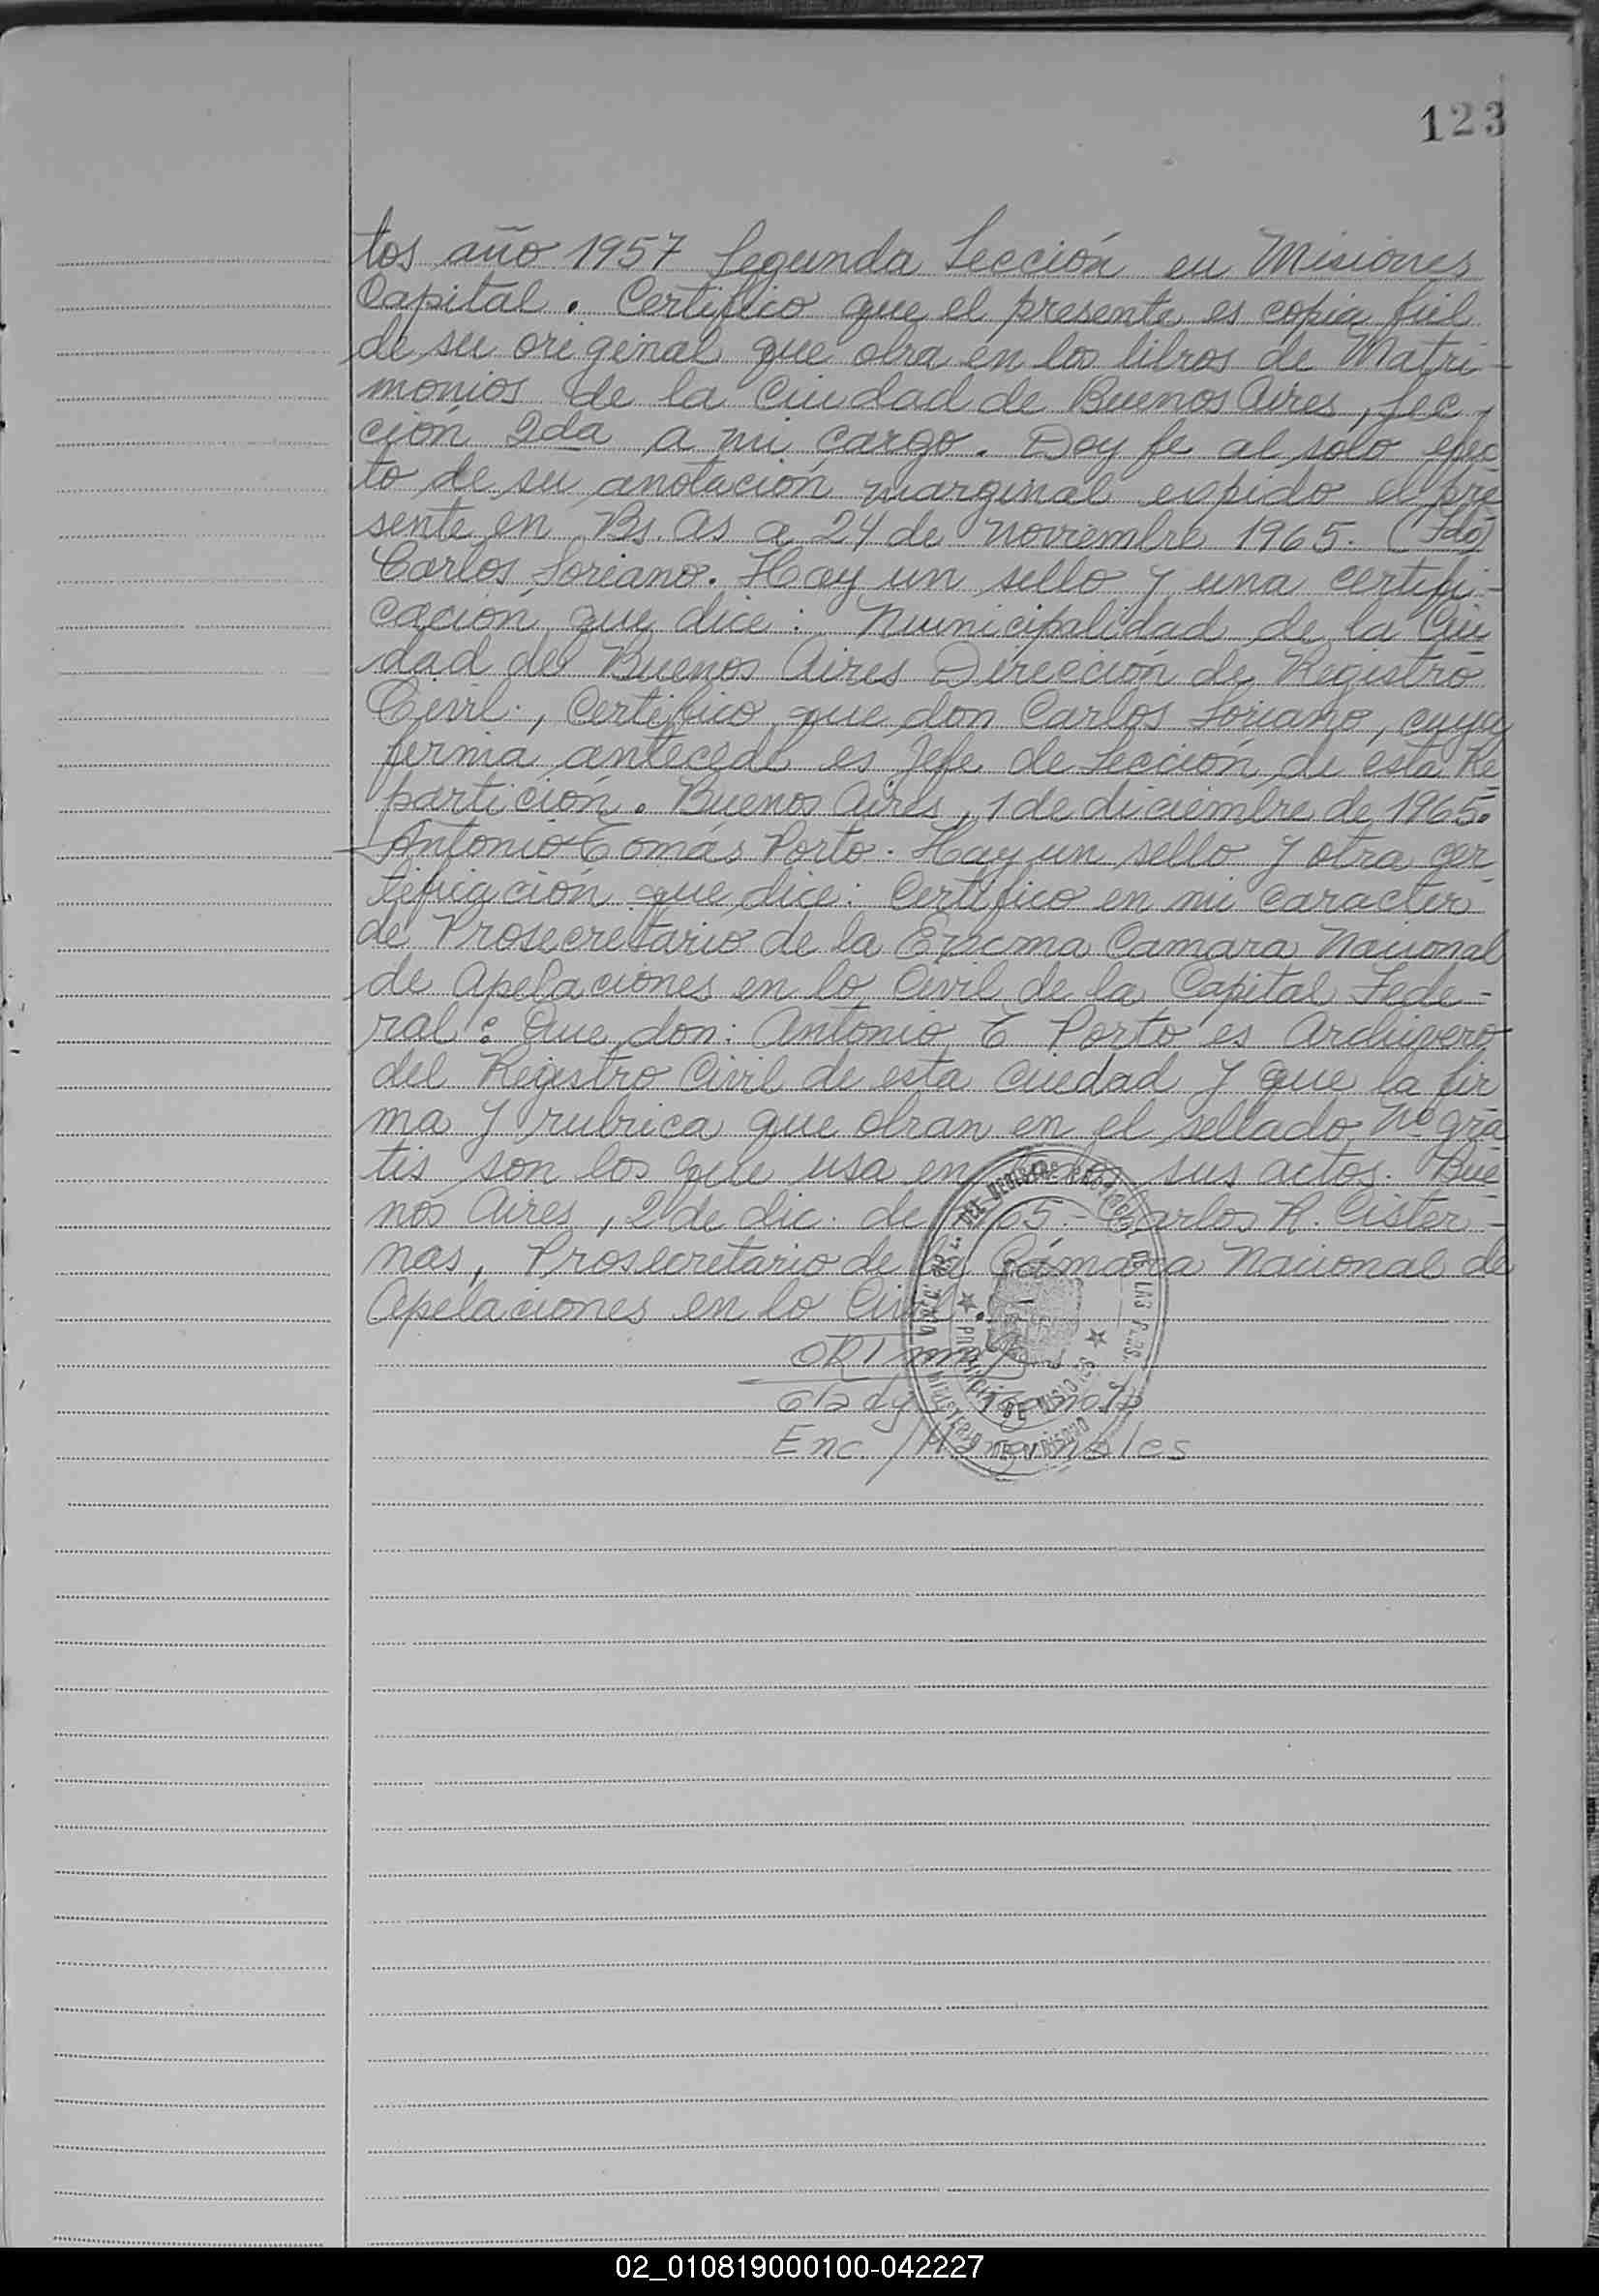 123
tos año 1957 Segunda Sección en Misiones
Capital. Certifico que el presente es copia fiel
de su original que obra en los libros de Matri-
monios de la Ciudad de Buenos Aires, Sec-
ción 2da a mi cargo. Doy fe al solo efec-
to de su anotación marginal expido el pre
sente en Bs. As a 24 de noviembre 1965. (Fdo)
Carlos Soriano. Hay un sello y una certifi-
cación que dice: Municipalidad de la Ciu
dad de Buenos Aires Dirección de Registro
Civil., Certifico que don Carlos Soriano, cuya
firma antecede es Jefe de Sección de esta Re
partición. Buenos Aires, 1 de diciembre de 1965.
Antonio Tomás Porto. Hay un sello y otra cer
tificación que dice: Certifico en mi caracter
de Prosecretario de la Excma Camara Nacional
de Apelaciones en lo Civil de la Capital Fede-
ral: Que don: Antonio T Porto es Archivero
del Registro Civil de esta ciudad y que la fir
ma y rubrica que obran en el sellado Nº gra
tis son los que usa en sus actos. Bue
nos Aires, 2 de dic. de 65.- Carlos R. Cister-
nas, Prosecretario de la Cámara Nacional de
Apelaciones en lo Civil.
Enc. Marginales
PROVINCIA DE MISIONES
DE LAS
02_010819000100-042227